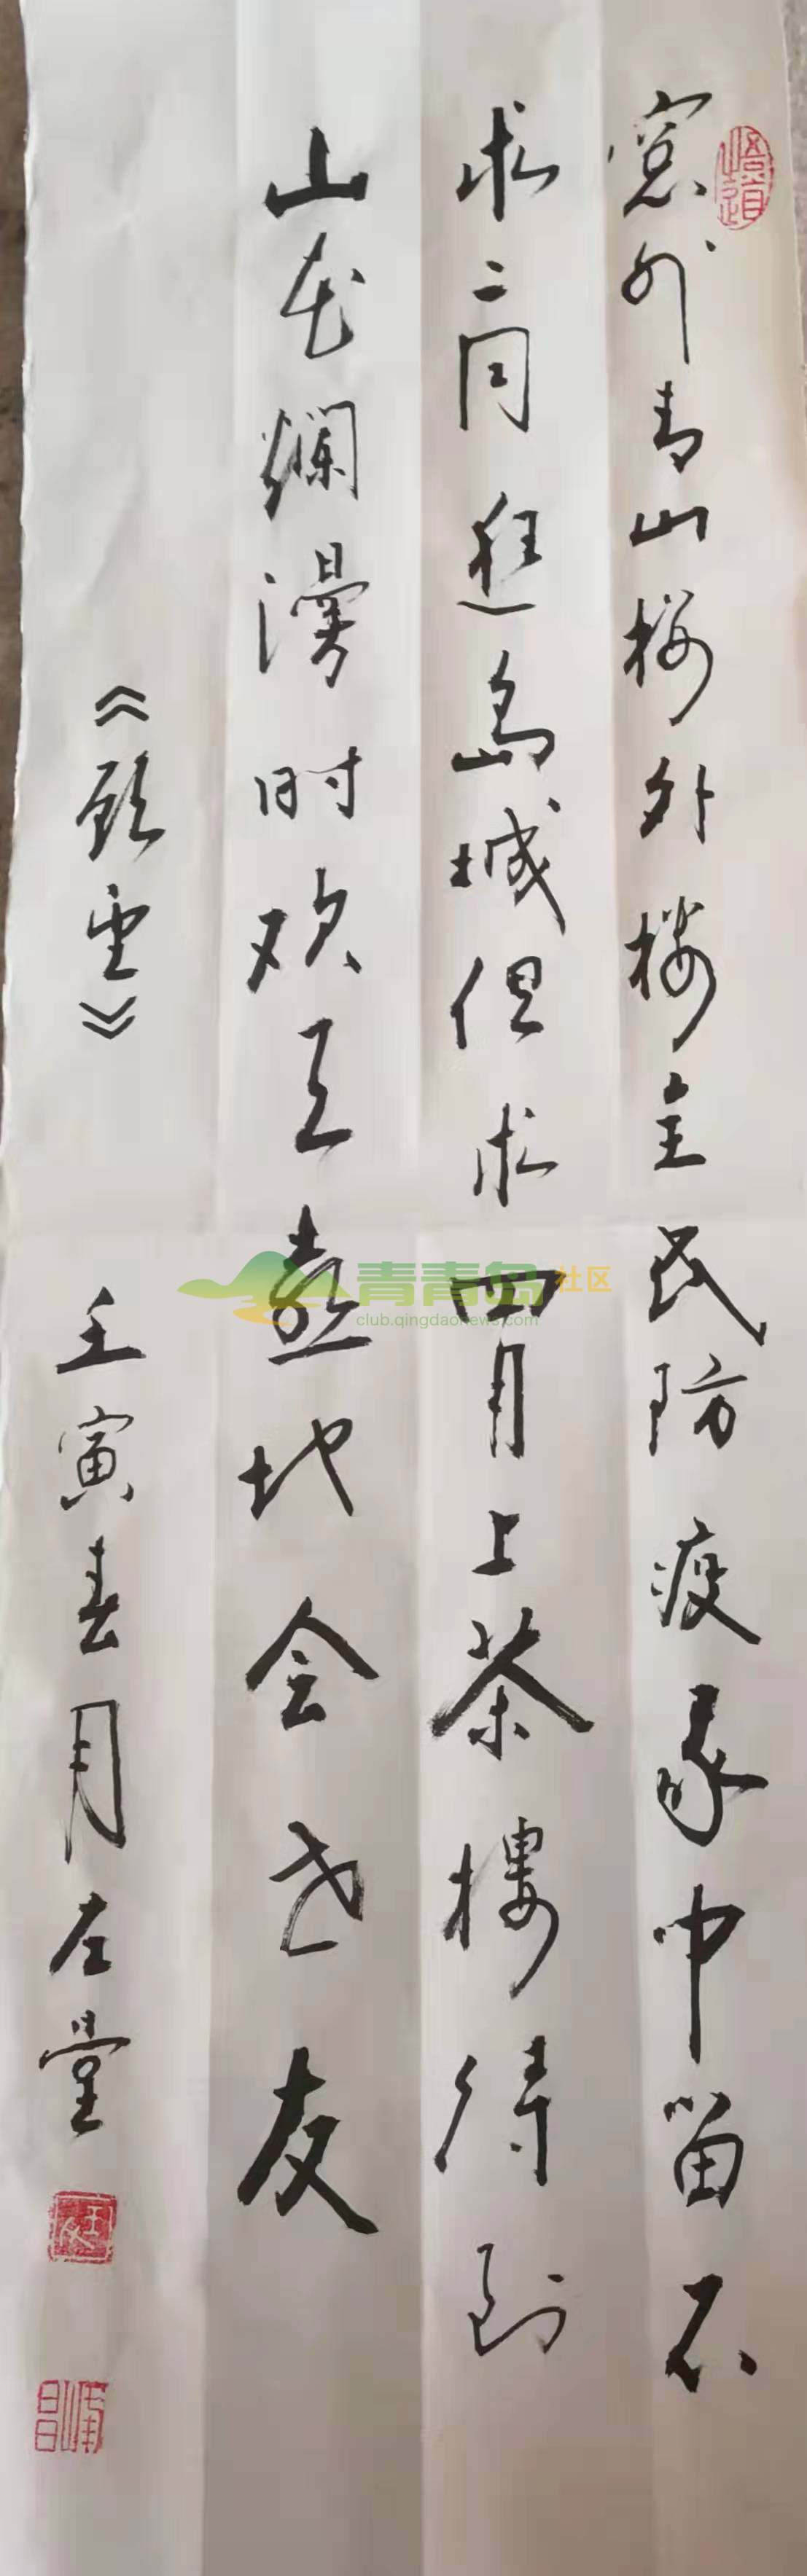 窓外青山楼外楼主民防疫家中留不
求二月逛島城但求四月上茶樓待到
山花爛漫时欢天喜地会老友
《願望》
壬寅春月左堂
悟道
青青岛社区
club.qingdaonews.com